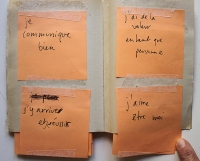 je
communique
bien
j'ai de la
valeur
en tant que
personne
j'y arrive
j'aime
être moi